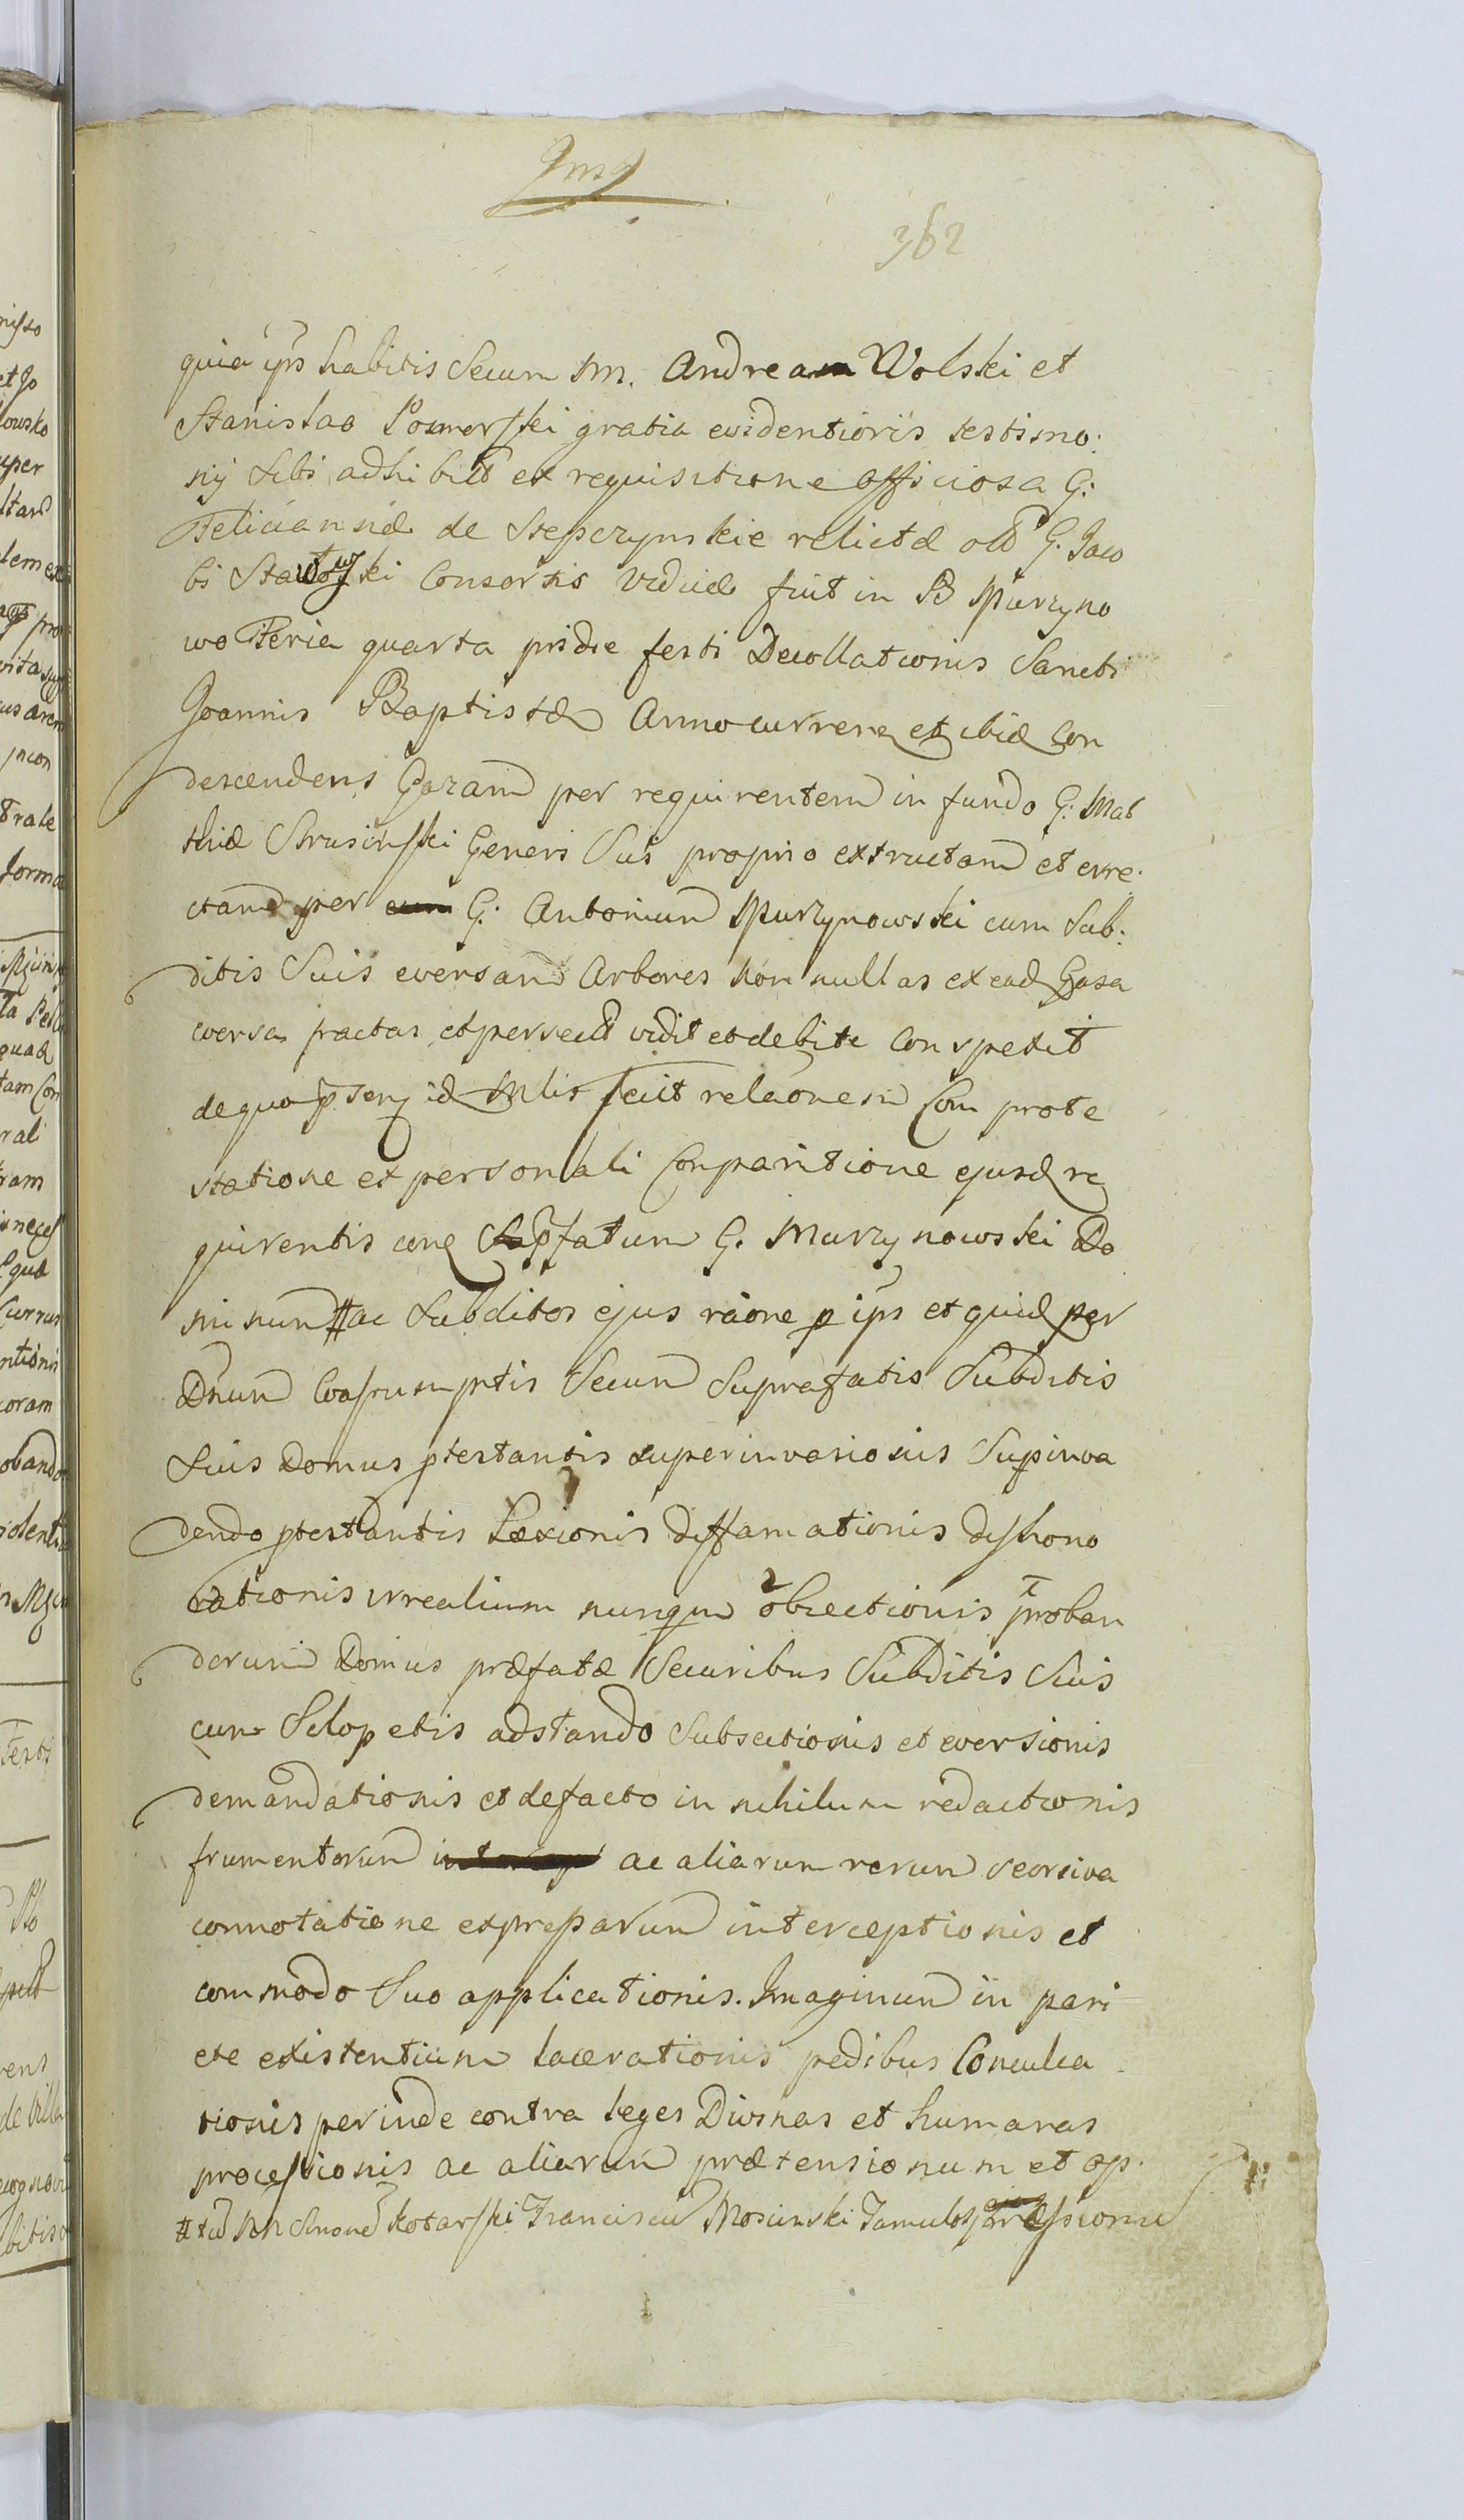 362
quia ip̃s habitis Secum m. Andream Wolski et
Stanislao Pomorski gratia evidentioris testimo:
nij Sibi adhibit ex requisitione officiosa G:
Feliciannæ de Stepczynskie relictæ olỡ G. Jaco
bi Stawski Consortis Viduæ fuit in B Murzyno
wo Feria quarta pridie festi Decollationis Sancti
Joannis Baptistæ Anno curren et ibid Con
descendens Gazam per requirentem in fundo G. Mat
thiæ Strusinski Generi Sui proprio extructam et erre.
ctam per G. Antonium Murzynowski cum Sub:
ditis Suis eversam Arbores non nullas ex ead Gasa
eversa fractas et persect vidit et debite Conspexit
de quo p̃sens id Mlis fecit relaõnem Com prote
statione et personali Comparitione ejusd re
quirentis cone p̃fatum G. Murzynowski Do
minum # ac Subditos ejus raõne p ip̃s et quid per
Dnum Coassumptis Secum Suprafatis Subditis
Suis Domus ptestantis superinvasionis Supinva
dendo ptestantis Læsionis diffamationis dishono
rationis irrealium nunqm obiectionis proban
dorum Domus præfatæ Securibus Subditis Suis
cum Sclopetis adstando Subsectionis et eversionis
demandationis et defacto in nihilum redactionis
frumentorum ac aliarum rerum seorsiva
connotatione expressarum interceptionis et
commodo Suo applicationis. Imaginum in pari
ete existentium lacerationis pedibus Conculca
tionis perinde contra leges Divinas et humanas
processionis ac aliarum prætensionum et op.
# tũ NN Simonẽ Kotarski Franciscũ Mosinski Famulos pressionũ